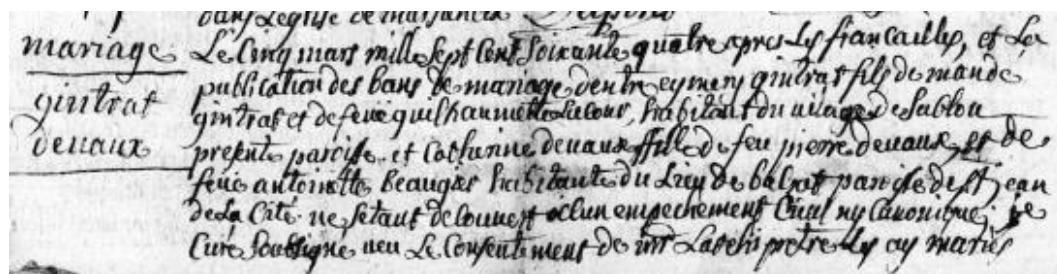 dans Leglise de
mariage
gintrat
devaux
Le Cinq mars mille Sept Cent Soixante quatre apres Les fiancailles, et La
publication des bans de mariage dentre eymery gintrat fils de mande
gintrat et de feüe guilhaumette Lacour, habitant du vilage de Sablou
presente paroisse et Catherine devaux fille de feu pierre devaux, et de
feüe antoinette beaugier habitante du Lieu de balzat paroisse de St jean
de La Cité ne Setant decouvert aucun empechement Civil ny Canonique je
Curé Soussigné veu Le Consentement de mr pretre Les ay mariés